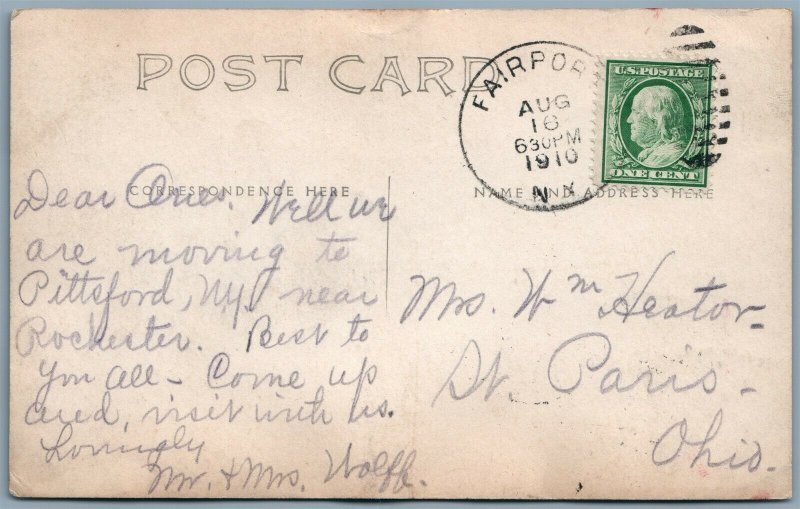 POST CARD
FAIRPOR
AUG
16
630PM
1910
N Y
U.S. POSTAGE
ONE CENT
CORRESPONDENCE HERE
NAME AND ADDRESS HERE
Dear Ones. Well we
are moving to
Pittsford, Ny. near
Rochester. Best to
you all - Come up
and, visit with us.
Lovingly
Mr. & Mrs. Wolff.
Mrs. Wm Heator-
St. Paris -
Ohio.